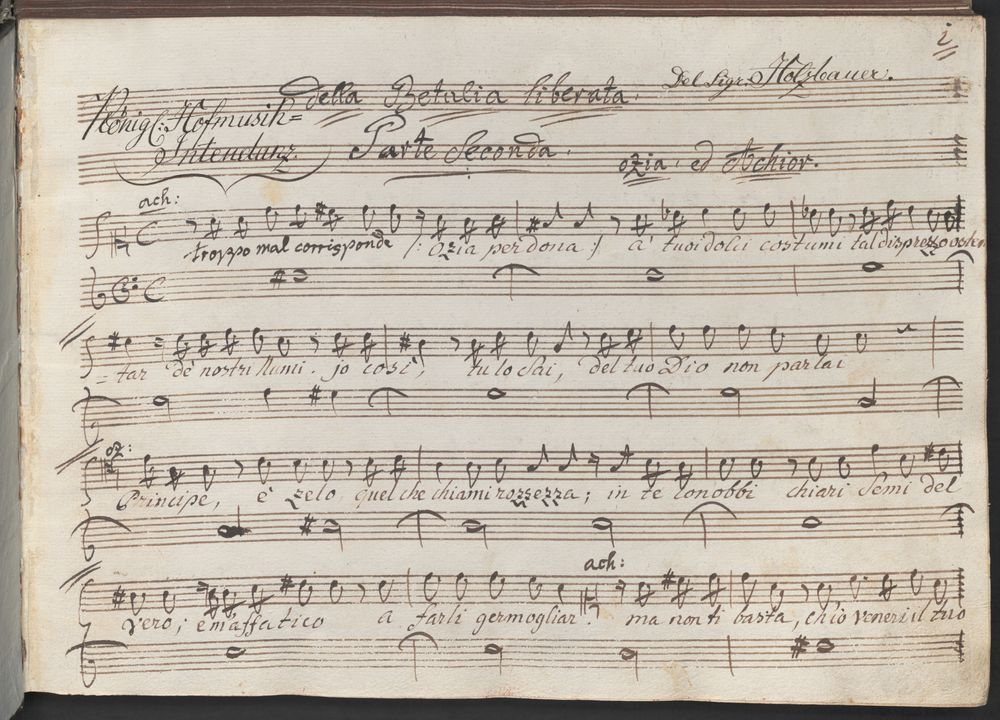 i
della Betulia liberata. Del Sigr: Holzbauer.
Königl: Hofmusik=
Intendanz. Parte Seconda.
ozia. ed Achior.
ach:
troppo mal corrisponde /: Ozia perdona :/ a' tuoi dolci costumi tal disprezzo osten
-tar de nostri Numi. io così, tu lo sai, del tuo Dio non parlai
oz:
Principe, è zelo quel che chiami rozzezza; in te conobbi chiari semi del
ach:
vero; e m'affatico a farli germogliar. ma non ti basta, ch'io veneri il tuo